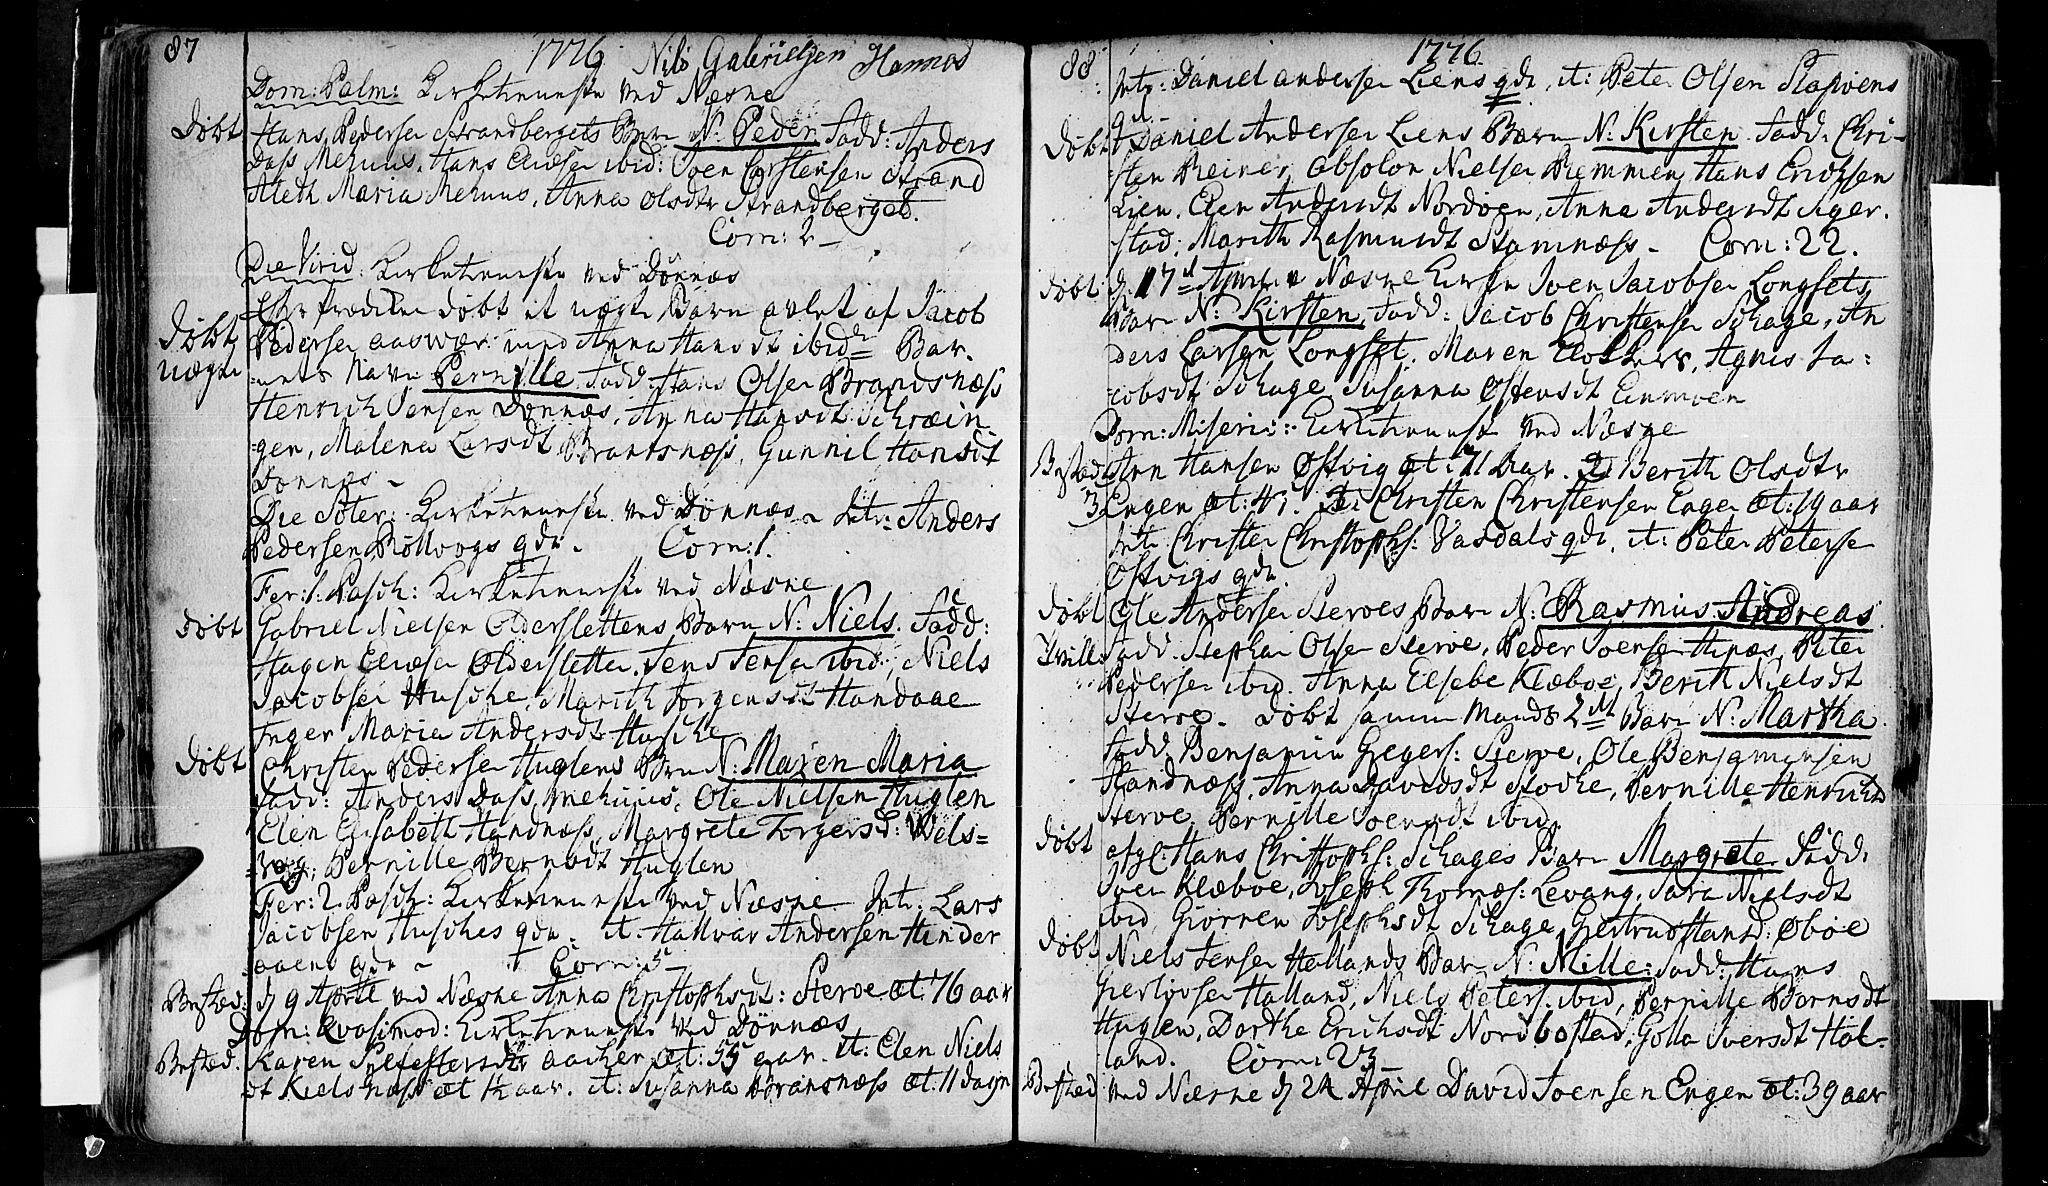 87
1776 Nils Gabrielsen Hannos
Dom: Palm: Kirketienneste ved Næsne
Døbt Hans Pedersen Strandbergets Barn N: Peder. Fadd: Anders
Dass Mehuus. Hans Eliæsen ibid: Joen Carstensen Strand
Aleth Maria Mehuus, Anna Olsdtr Strandberget.
Com: 2 -
Die Virid: Kirketienneste ved Dønnæs
Døbt uægte Efter Prædiken døbt it uægte Barn avlet af Jacob
Pedersen Aasvær med Anna Hansdt ibid. Bar-
nets Navn Pernille Fadd: Hans Olsen Brandsnæss
Henrich Jensen Dønnæs, Anna Hansdt Schrein
gen, Malena Larsdt Brantsnæss, Gunnil Hansdt
Dønnes -
Die Soter: Kirketienneste ved Dønnæs - Intr: Anders
Pedersen Røllvogs qde. Com: 1.
Fer: 1. Pasch: Kirketienneste ved Næsne
Døbt Gabriel Nielsen Oldersslettens Barn N: Niels. Fadd:
Hagen Eliæsen Oldersletten. Jens Jensen ibid, Niels
Jacobsen Husche, Marith Jørgensdt Handaae
Inger Maria Andersdt Husche
Døbt Christen Pedersen Huglens Barn N: Maren Maria
Fadd: Anders Dass Mehuus, Ole Nielsen Huglen
Elen Elisabeth Handnæss, Margrete Torgersd: Wels-
vog, Pernille Berndt Huglen
Fer: 2. Pasch: Kirketienneste ved Næsne Intr: Lars
Jacobsen Husches qde. it: Hallvar Andersen Hinder
aaens qde - Com: 5 -
Bested: d 9 April ved Næsne Anna Christophsdt: Sterve æt: 76 aar
Dom: Qvasimod: Kirketienneste ved Dønnæs
Bested. Karen Silfestersdt Aaker æt: 55 aar. it: Elen Niels
dt Kielsnæss æt aar. it: Susanna Bransnæss æt: 11 dage
88
1776
Intr: Daniel Andersen Liens qde, it: Peter Olsen Slapøens
qd
Døbt Daniel Andersen Liens Barn N: Kirsten. Fadd. Chri-
sten Reiner, Absolon Nielsen Remmen, Hans Erichsen
Lien. Elen Andersdt Nordøen, Anna Andersdt Siger-
stad. Marith Rasmusdt Stamnæss - Com: 22.
Døbt d. 17 April i Næsne Kirke Iver Jacobsen Longsets
Barn N: Kirsten, Fadd: Jacob Christensen Schage, An
ders Larsen Longset. Maren Klokkers, Agnis Ja-
cobsdt Schage, Susanna Østensdt Einmoen
Dom: Miseric: Kirketienneste ved Næsne
Bested Arn Hansen Østvig æt: 71 aar. 2 Berith Olsdtr
3 Engen æt: 3. Christen Christensen Enge æt: 19 aar
Intr Christen Christophs: Vasdals qde, it: Peter Peterse
Østvigs qde
Døbt Ole Andersen Sterves Barn N: Rasmus Andreas
Tvill. Fadd. Stephan Olsen Sterve, Peder Joensen Hæs, Peter
Pedersen ibid. Anna Elsebe Klæboe, Berith Nielsdt
Sterve. Døbt samme Mands 2det Barn N: Martha.
Fadd Benjamin Gregers: Sterve, Ole Benjamensen
Handnæss, Anna Davidsdt Stocke, Pernille Henrichd
Sterve, Pernille Joensdt ibid.
Døbt Hans Christophs: Schages Barn Margrete Fadd:
Iver Klæboe, Joseph Thomæs: Levang, Sara Nielsdt
ibid, Giørren Josephsdt Schage, Giertrud Hansd: Øboe
Døbt Niels Jensen Hollands Barn N: Mille: Fadd: Hans
Giertsøsen Halland, Niels Peters. ibid, Pernille Barnsdt
Huglen, Dorthe Erichsdt Nordbostad, Golla Iversdt Hol-
land. Com: 23 -
Bested ved Næsne d 24 April David Joensen Engen æt: 39 aar